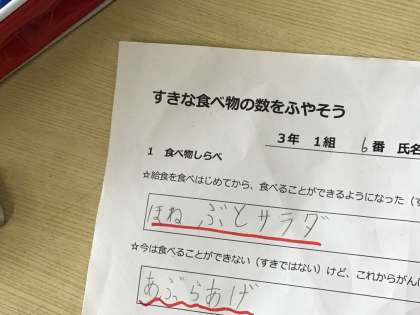 すきな食べ物の数をふやそう
3年 1組 6番 氏名
1 食べ物しらべ
☆給食を食べはじめてから、食べることができるようになった（す
ほねぶとサラダ
☆今は食べることができない（すきではない）けど、これからがん
あぶらあげ